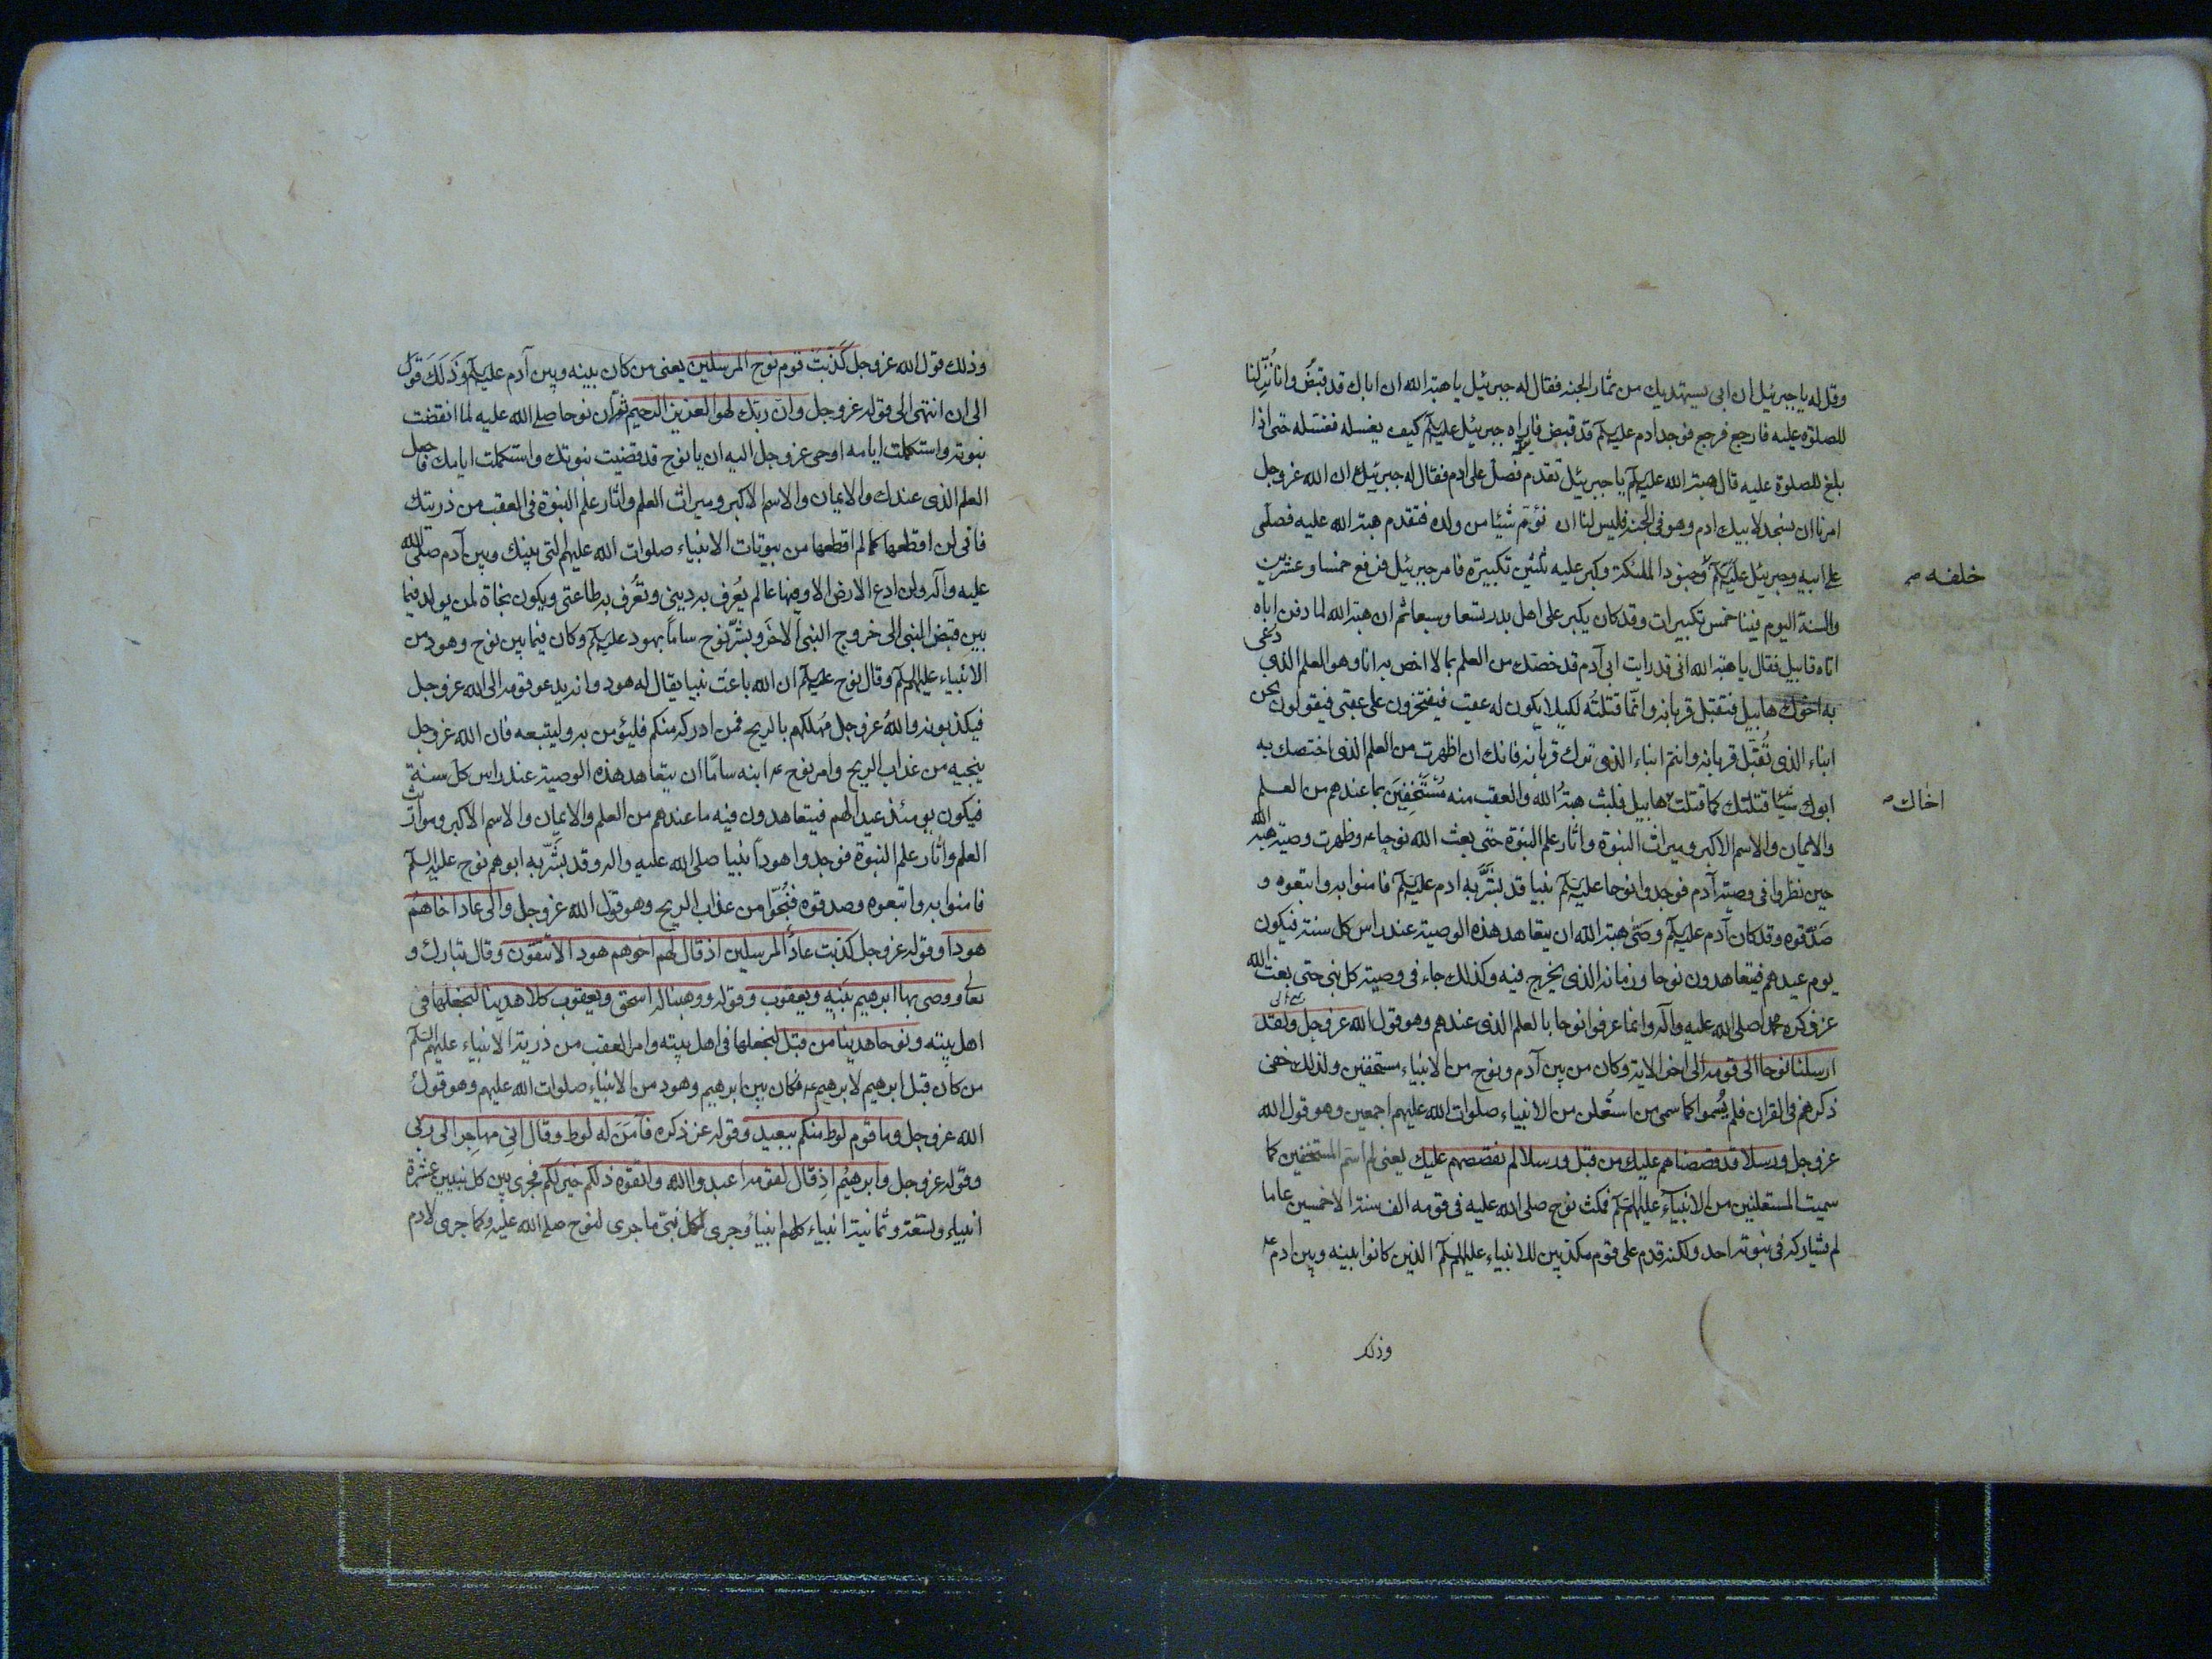 وقل له يا جبرئيل ان ابى يستهديك من ثمار الجنة فقال له جبرئيل يا هبة الله ان اباك قد قبض وانا نزلنا
للصلوة عليه فارجع فرجع فوجد ادم عليه السلم قد قبض فاراه جبرئيل عليه السلم كيف يغسله فغسله حتى اذا
بلغ للصلوة عليه قال هبة الله عليه السلم يا جبرئيل تقدم فصل على ادم فقال له جبرئيل ان الله عز وجل
امرنا ان نسجد لابيك ادم وهو فى الجنة فليس لنا ان نؤم شيئا من ولده فتقدم هبة الله عليه فصلى
على ابيه وجبرئيل عليه السلم وجنود الملئكة وكبر عليه ثلثين تكبيرة فامر جبرئيل فرفع خمسا وعشرين
خلفه
والسنة اليوم فينا خمس تكبيرات وقد كان يكبر على اهل بدر تسعا وسبعا ثم ان هبة الله لما دفن اباه
اتاه قابيل فقال يا هبة الله انى قد رايت ابى آدم قد خصك من العلم بما لا اخص به انا وهو العلم الذى دعى
به اخوك هابيل فتقبل قربانه وانما قتلته لكيلا يكون له عقب فيفتخرون على عقبى فيقولون نحن
ابناء الذى تقبل قربانه وانتم ابناء الذى ترك قربانه فانك ان اظهرت من العلم الذى اختصك به
ابوك شيئا قتلتك كما قتلت هابيل فلبث هبة الله والعقب منه مستخفين بما عندهم من العلم
اخاك
والايمان والاسم الاكبر وميراث النبوة واثار علم النبوة حتى بعث الله نوحا وظهرت وصية هبة الله
حين نظروا فى وصية آدم فوجدوا نوحا عليه السلم نبيا قد بشر به ادم عليه السلم فامنوا به واتبعوه و
صدقوه وقد كان آدم عليه السلم وصى هبة الله ان يتعاهد هذه الوصية عند راس كل سنة فيكون
يوم عيدهم فيتعاهدون نوحا وزمانه الذى يخرج فيه وكذلك جاء فى وصية كل نبى حتى بعث الله
عز ذكره محمدا صلى الله عليه وآله وانما عرفوا نوحا بالعلم الذى عندهم وهو قول الله عز وجل ولقد
ارسلنا نوحا الى قومه الى اخر الاية وكان من بين آدم ونوح من الانبياء مستخفين ولذلك خفى
ذكرهم فى القران فلم يسموا كما سمى من استعلن من الانبياء صلوات الله عليهم اجمعين وهو قول الله
عز وجل ورسلا قد قصصناهم عليك من قبل ورسلا لم نقصصهم عليك يعنى لم اسم المستخفين كما
سميت المستعلنين من الانبياء عليهم السلم فمكث نوح صلى الله عليه فى قومه الف سنة الا خمسين عاما
لم يشاركه فى نبوته احد ولكنه قدم على قوم مكذبين للانبياء عليهم السلم الذين كانوا بينه وبين ادم
وذلك
وذلك قول الله عز وجل كذبت قوم نوح المرسلين يعنى من كان بينه وبين آدم عليه السلم وذلك قول
الى ان انتهى الى قوله عز وجل وان ربك لهو العزيز الرحيم ثم ان نوحا صلى الله عليه لما انقضت
نبوته واستكملت ايامه اوحى عز وجل اليه ان يا نوح قد قضيت نبوتك واستكملت ايامك فاجعل
العلم الذى عندك والايمان والاسم الاكبر وميراث العلم واثار علم النبوة فى العقب من ذريتك
فانى لن اقطعها كما لم اقطعها من بيوتات الانبياء صلوات الله عليهم التى بينك وبين آدم صلى الله
عليه وآله ولن ادع الارض الا وفيها عالم يعرف به دينى وتعرف به طاعتى ويكون نجاة لمن يولد فيما
بين قبض النبى الى خروج النبى الاخر وبشر نوح ساما بهود عليه السلم وكان فيما بين نوح وهود من
الانبياء عليهم السلم وقال نوح عليه السلم ان الله باعث نبيا يقال له هود وانه يدعو قومه الى الله عز وجل
فيكذبونه والله عز وجل مهلكهم بالريح فمن ادركه منكم فليؤمن به وليتبعه فان الله عز وجل
ينجيه من عذاب الريح وامر نوح ع ابنه ساما ان يتعاهد هذه الوصية عند راس كل سنة
فيكون يومئذ عيدا لهم فيتعاهدون فيه ما عندهم من العلم والايمان والاسم الاكبر ومواريث
العلم واثار علم النبوة فوجدوا هودا نبيا صلى الله عليه واله وقد بشر به ابوهم نوح عليه السلم
فامنوا به واتبعوه وصدقوه فنجوا من عذاب الريح وهو قول الله عز وجل والى عاد اخاهم
هودا وقوله عز وجل كذبت عاد المرسلين اذ قال لهم اخوهم هود الا تتقون وقال تبارك و
تعالى ووصى بها ابرهيم بنيه ويعقوب وقوله ووهبنا له اسحق ويعقوب كلا هدينا لنجعلها فى
اهل بيته ونوحا هدينا من قبل لنجعلها فى اهل بيته وامر العقب من ذرية الانبياء عليهم السلم
من كان قبل ابرهيم لابرهيم ع فكان بين ابرهيم وهود من الانبياء صلوات الله عليهم وهو قول
الله عز وجل وما قوم لوط منكم ببعيد وقوله عز ذكره فآمن له لوط وقال انى مهاجر الى ربى
وقوله عز وجل وابرهيم اذ قال لقومه اعبدوا الله واتقوه ذلكم خير لكم فجرى بين كل نبيين عشرة
انبياء وتسعة وثمانية انبياء كلهم انبياء وجرى لكل نبى ما جرى لنوح صلى الله عليه وكما جرى لادم